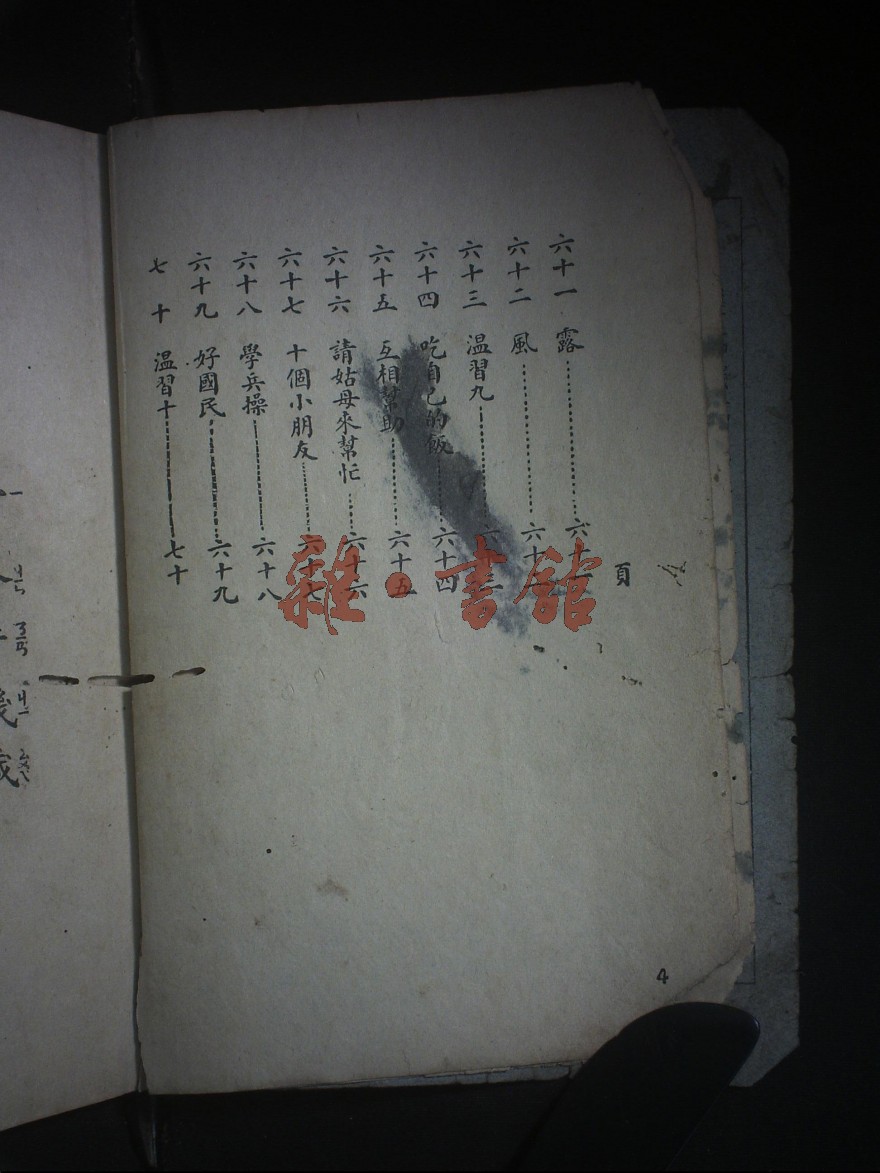 頁
六十一 露……六十一
六十二 風……六十二
六十三 温習九……六十三
六十四 吃自己的飯……六十四
六十五 互相幫助……六十五
六十六 請姑母來幫忙……六十六
六十七 十個小朋友……六十七
六十八 學兵操……六十八
六十九 好國民……六十九
七十 温習十……七十
4
雜·書館